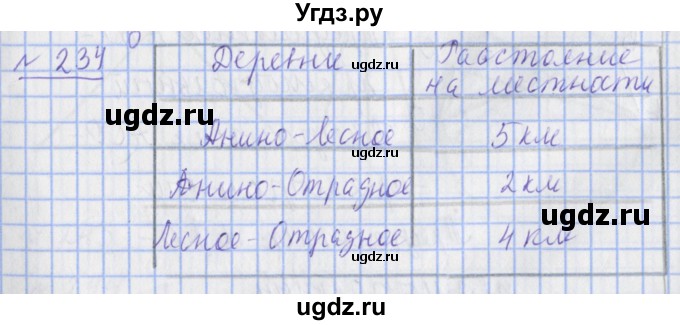 Угдз.ру
№ 234 Деревни ugdz.ru Расстояние
на местности
ugdz.ru
Анино-Лесное 5 км
ugdz.ru
Анино-Отрадное 2 км
ugdz.ru
Лесное-Отрадное 4 км
ugdz.ru
ugdz.ru